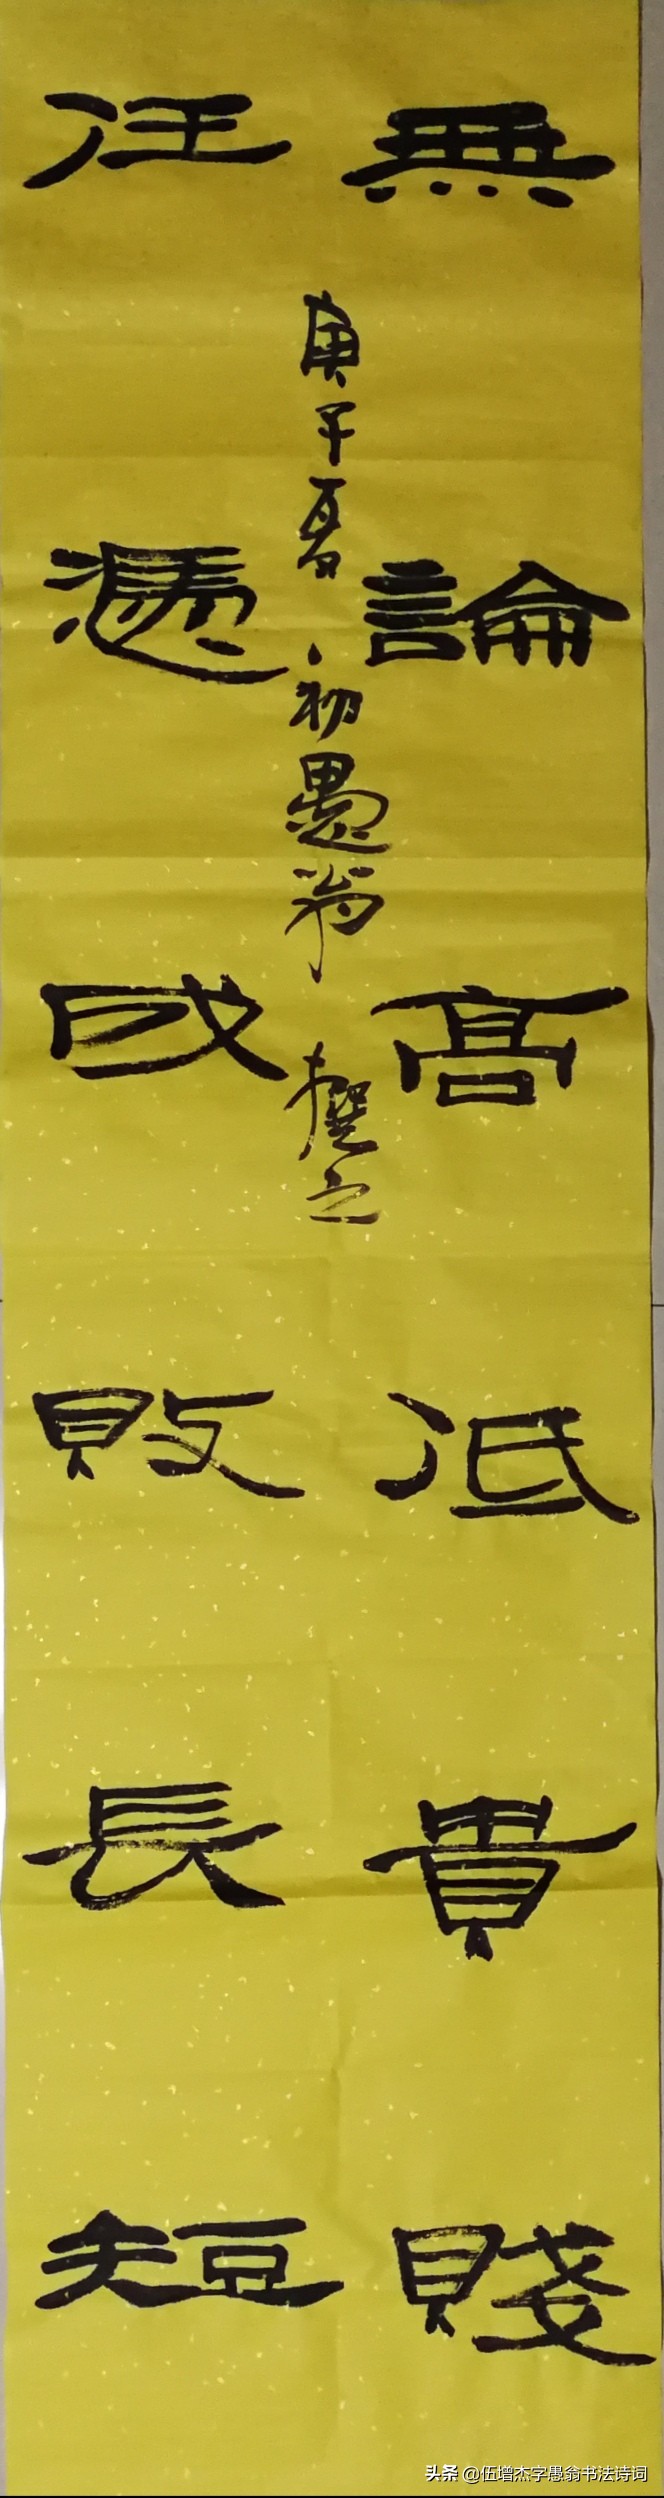 無論高低貴賤
任憑成敗長短
庚子夏初愚翁撰之
头条 @伍增杰字愚翁书法诗词